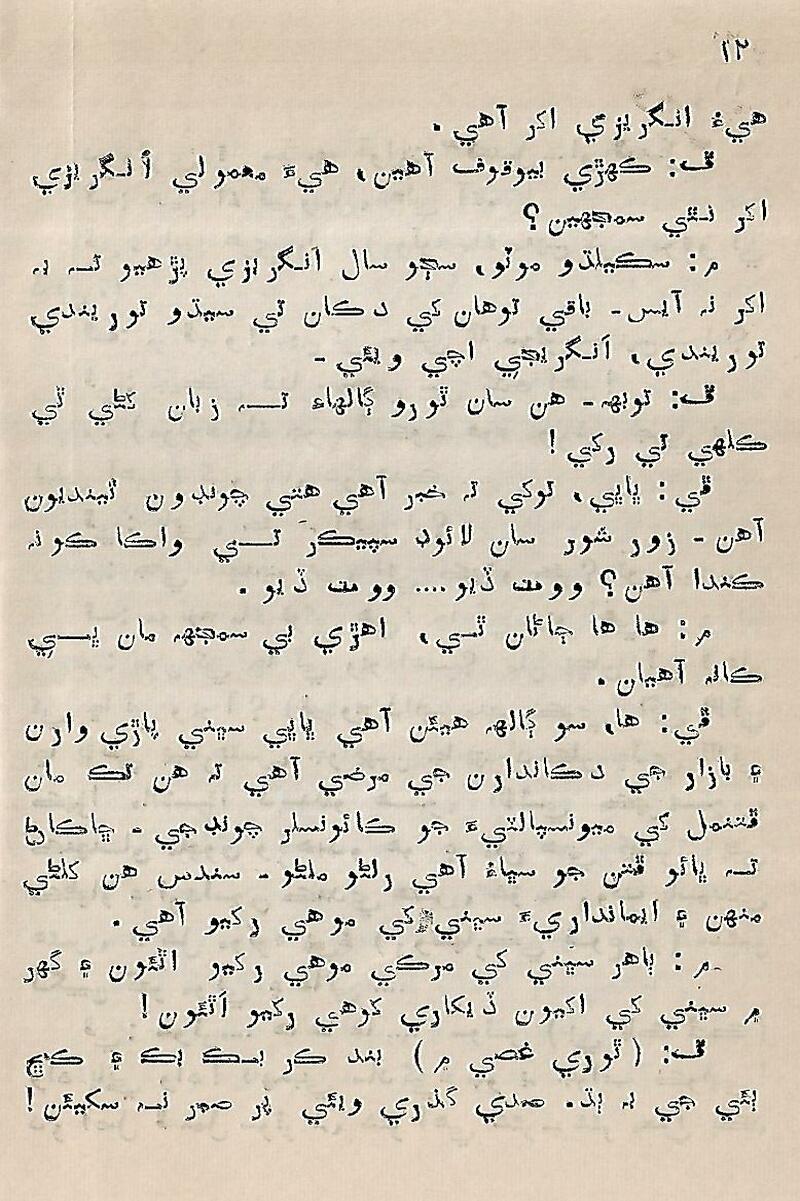 ١٢
هيءُ انگريزي اکر آهي.
ف: ڪهڙي بيوقوف آهين، هيءَ معمولي اَنگريزي
اکر نٿي سمجهين؟
م: سڪيلڌو موٽو، سڄو سال اَنگريزي پڙهيو تہ بہ
اکر نہ آيس- باقي توهان کي دڪان تي سيڌو توريندي
توريندي، اَنگريجي اچي ويئي-
ف: توبهہ- هن سان ٿورو ڳالهاءِ تہ زبان کڻي ٿي
ڪلهي تي رکي!
ڦي: ڀاڀي، توکي تہ خبر آهي هتي چونڊون ٿينديون
آهن- زور شور سان لائوڊ سپيڪر تي واڪا ڪونہ
ڪندا آهن؟ ووٽ ڏيو.... ووٽ ڏيو.
م: ها ها ڄاڻان ٿي، اهڙي بي سمجهہ مان ڀي
ڪانہ آهيان.
ڦي: ها، سو ڳالهہ هيئن آهي ڀاڀي سڀني پاڙي وارن
۽ بازار جي دڪاندارن جي مرضي آهي تہ هن تڪ مان
ڦتنمل کي ميونسپالٽيءَ جو ڪائونسلر چونڊجي- ڇاڪاڻ
تہ ڀائو ڦتن جو سڀاءُ آهي رلڻو ملڻو- سندس هن کلڻي
منهن ۽ ايمانداريءَ سڀني کي موهي رکيو آهي.
م: ٻاهر سڀني کي مرڪي موهي رکيو اٿئون ۽ گهر
۾ سڀني کي اکيون ڏيکاري ڪوهي رکيو اَٿئون!
ف: (ٿوري غصي ۾) بند ڪر بڪ بڪ ۽ ڪڇ
ٻئي جي بہ ٻڌ. صدي گذري ويئي پر صبر نہ سکيئن!